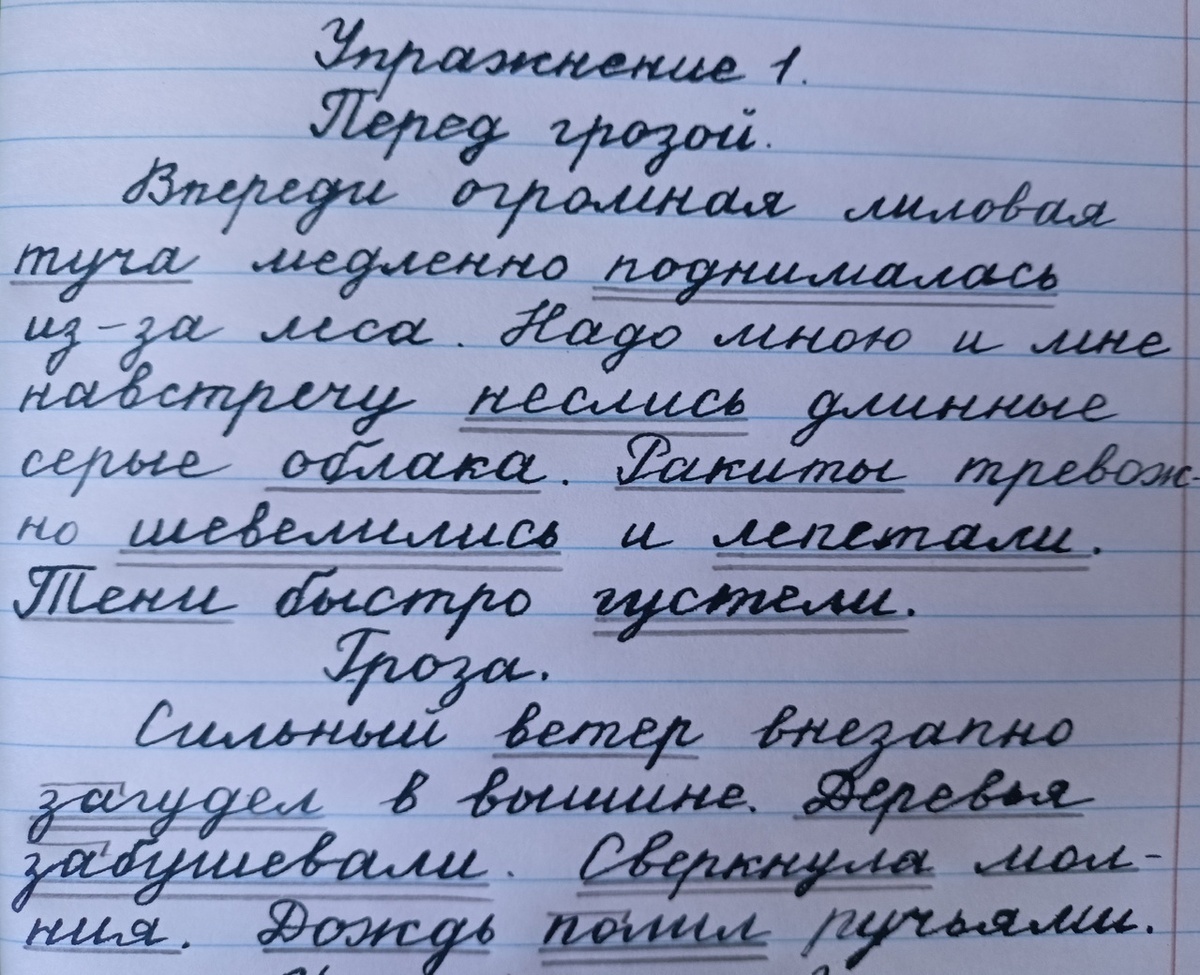 Упражнение 1.
Перед грозой.
Впереди огромная лиловая
туча медленно поднималась
из-за леса. Надо мною и мне
навстречу неслись длинные
серые облака. Ракиты тревож-
но шевелились и лепетали.
Тени быстро густели.
Гроза.
Сильный ветер внезапно
загудел в вышине. Деревья
забушевали. Сверкнула мол-
ния. Дождь полил ручьями.